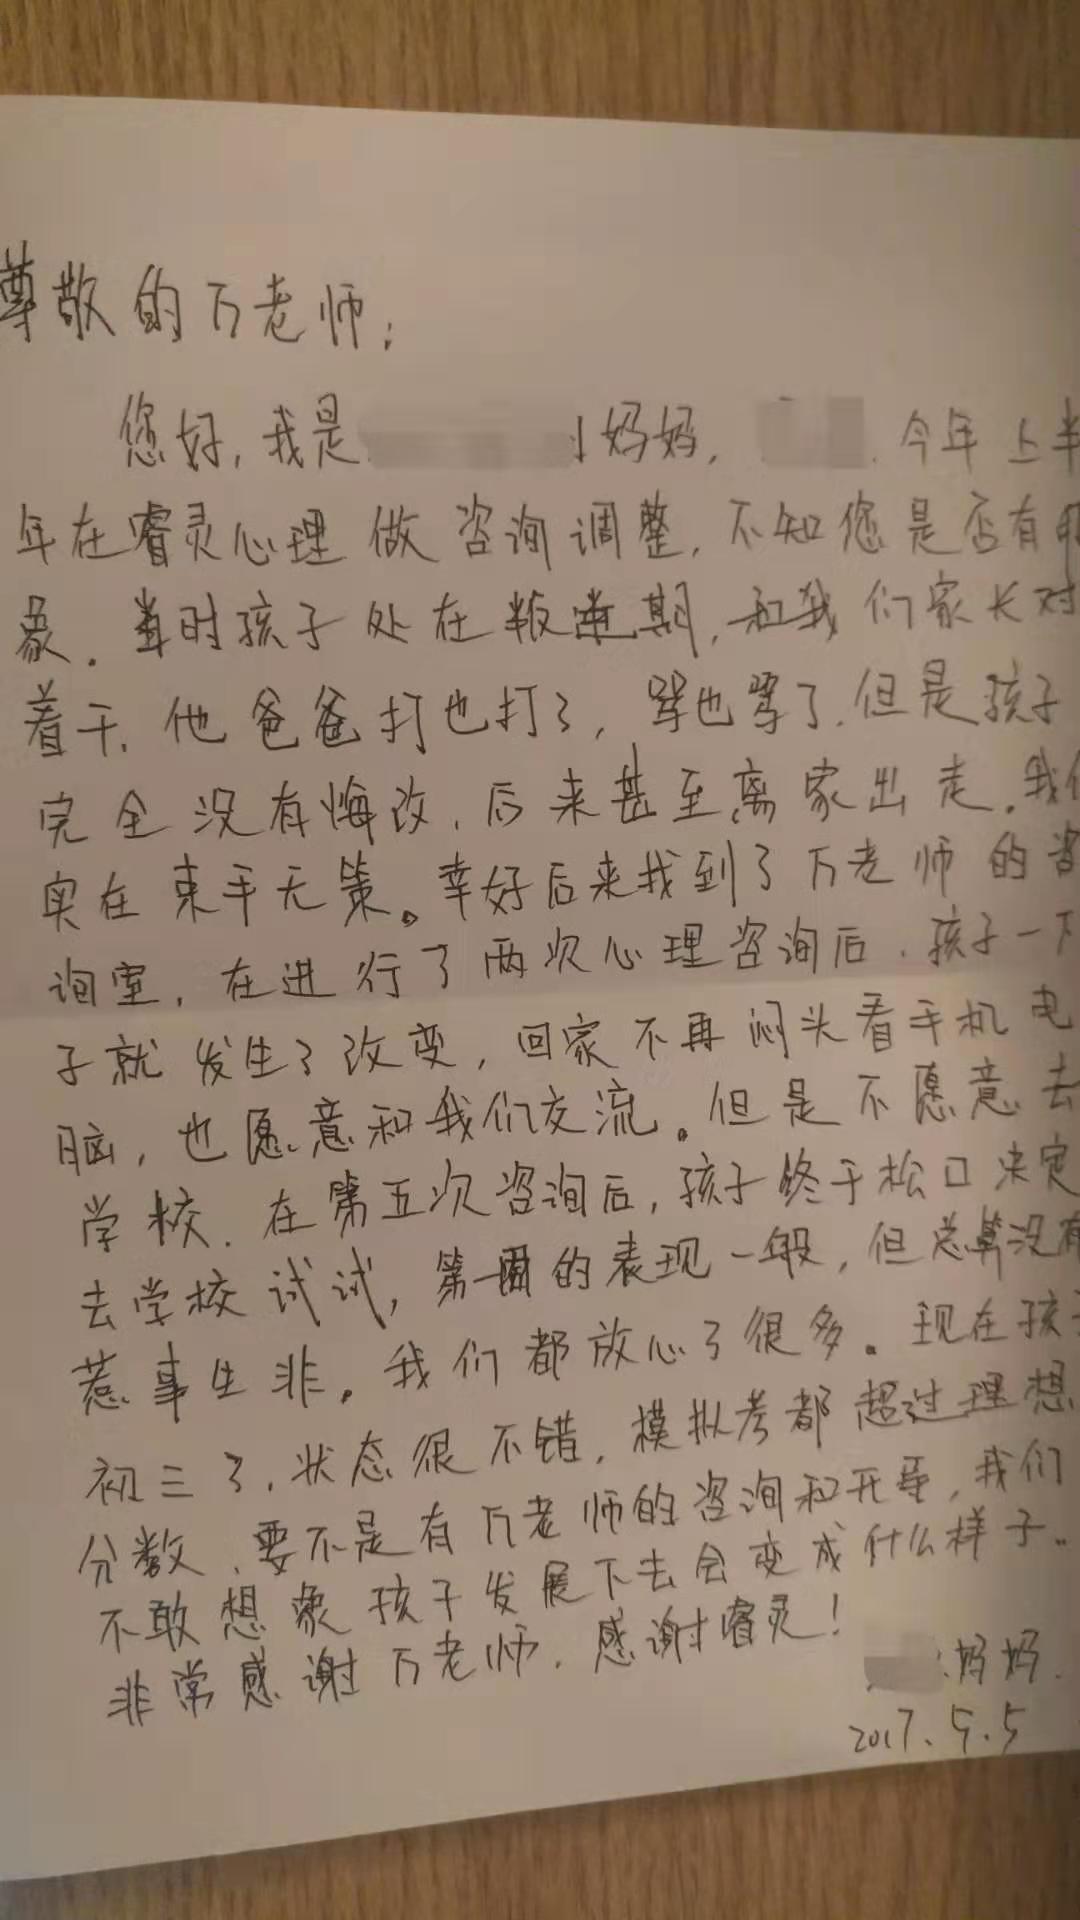 尊敬的万老师：
您好，我是 妈妈， 今年上半
年在睿灵心理做咨询调整，不知您是否有
象。当时孩子处在叛逆期，和我们家长对
着干，他爸爸打也打了，骂也骂了，但是孩子
完全没有悔改，后来甚至离家出走。我们
实在束手无策。幸好后来找到了万老师的咨
询室，在进行了两次心理咨询后，孩子一下
子就发生了改变，回家不再闷头看手机电
脑，也愿意和我们交流。但是不愿意去
学校，在第五次咨询后，孩子终于松口决定
去学校试试，第一周的表现一般，但总算没有
惹事生非。我们都放心了很多。现在孩子
初三了，状态很不错，模拟考都超过理想
分数，要不是有万老师的咨询和开导，我们
不敢想象孩子发展下去会变成什么样子。
非常感谢万老师，感谢睿灵！
妈妈
2017.5.5